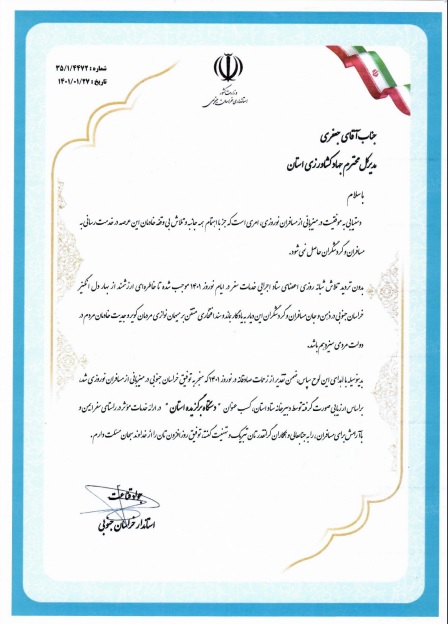 شماره: ۳۵/۱/۴۴۷۲
تاریخ: ۱۴۰۱/۰۱/۲۷
وزارت کشور
استانداری خراسان جنوبی
جناب آقای جعفری
مدیرکل محترم جهاد کشاورزی استان
با سلام
دستیابی به موفقیت در میزبانی از مسافران نوروزی، امری است که جز با اهتمام همه جانبه و تلاش بی وقفه خادمان این عرصه در خدمت رسانی به
مسافران و گردشگران حاصل نمی شود.
بدون تردید تلاش شبانه روزی اعضای ستاد اجرایی خدمات سفر در ایام نوروز ۱۴۰۱ موجب شده تا خاطره‌ای ارزشمند از بهار دل انگیز
خراسان جنوبی در ذهن و جان مسافران و گردشگران این دیار به یادگار بماند و سند افتخاری متقن بر میهمان نوازی مردمان کویر و جدیت خادمان مردم در
دولت مردمی سیزدهم باشد.
بدینوسیله با اهدای این لوح سپاس، ضمن تقدیر از زحمات صادقانه در نوروز ۱۴۰۱ که منجر به توفیق خراسان جنوبی در میزبانی از مسافران نوروزی شد،
براساس ارزیابی صورت گرفته توسط دبیرخانه ستاد استان، کسب عنوان "دستگاه برگزیده استان" در ارائه خدمات موثر در راستای سفر ایمن و
با آرامش برای مسافران، را به جنابعالی و همکاران گرانقدرتان تبریک و تهنیت گفته، توفیق روز افزون تان را از خداوند سبحان مسئلت دارم.
جواد قناعت
استاندار خراسان جنوبی